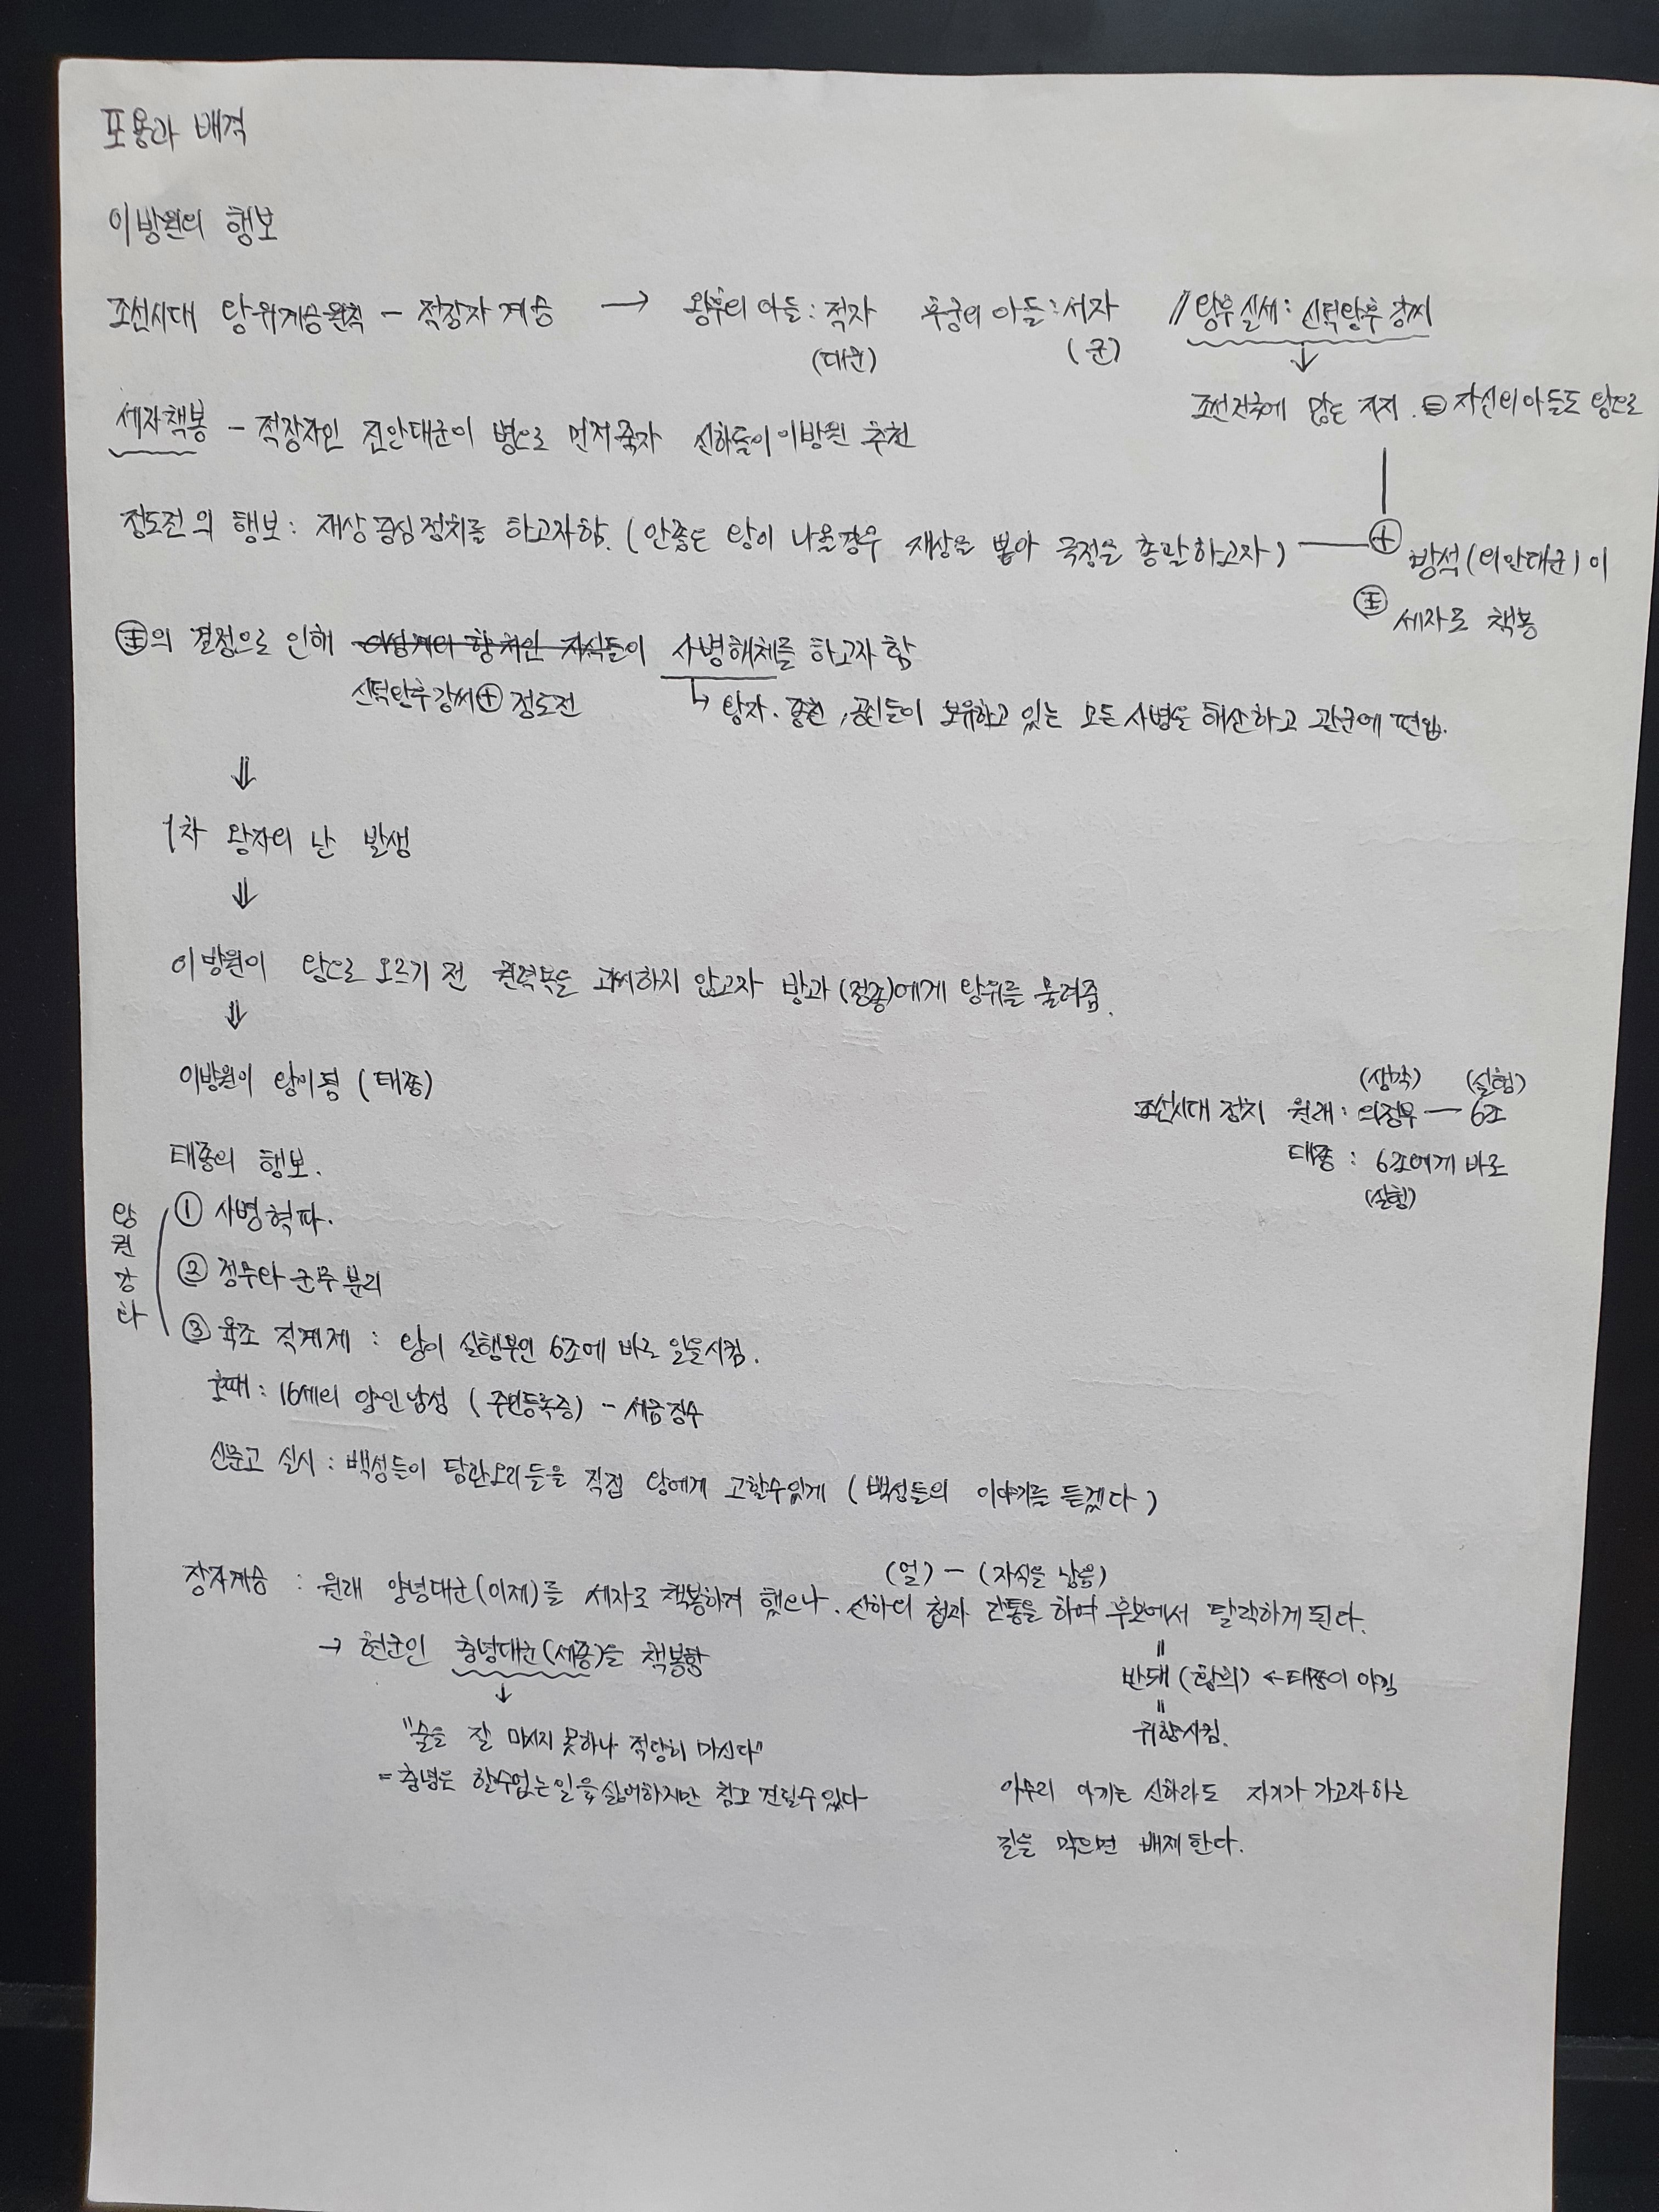 포용과 배척
이방원의 행보
조선시대 왕위계승원칙 - 적장자 계승 → 왕후의 아들 : 적자 후궁의 아들 : 서자 // 왕후 실세 : 신덕왕후 강씨
(대군) (군) ↓
조선건국에 많은 지지. 자신의 아들도 왕으로
세자책봉 - 적장자인 진안대군이 병으로 먼저죽자 신하들이 이방원 추천
정도전의 행보 : 재상 중심 정치를 하고자함. (안좋은 왕이 나올경우 재상을 뽑아 국정을 총괄하고자) — ⊕ 방석(의안대군)이
세자로 책봉
의 결정으로 인해 이성계의 향처인 자식들이 사병해체를 하고자 함
신덕왕후강씨 ⊕ 정도전 ↳ 왕자. 종친, 공신들이 보유하고 있는 모든 사병을 해산하고 관군에 편입.
⇓
1차 왕자의 난 발생
⇓
이방원이 왕으로 오르기 전 권력욕을 과시하지 않고자 방과(정종)에게 왕위를 물려줌.
⇓
이방원이 왕이됨 (태종)
(생각) (실행)
조선시대 정치 원래 : 의정부 — 6조
태종 : 6조에게 바로
(실행)
태종의 행보.
왕권강화
① 사병 혁파.
② 정무와 군무 분리
③ 육조 직계제 : 왕이 실행부인 6조에 바로 일을시킴.
호패 : 16세의 양인남성 (주민등록증) - 세금징수
신문고 실시 : 백성들이 탐관오리들을 직접 왕에게 고할수있게 (백성들의 이야기를 듣겠다)
(얼) - (자식을 낳음)
장자계승 : 원래 양녕대군(이제)를 세자로 책봉하려 했으나. 신하의 첩과 간통을 하여 후보에서 탈락하게 된다.
→ 현군인 충녕대군(세종)을 책봉함
↓
"술을 잘 마시지 못하나 적당히 마신다"
= 충녕은 할수없는일을 싫어하지만 참고 견딜수있다
반대 (황희) ← 태종이 아낌
귀향시킴.
아무리 아끼는 신하라도 자기가 가고자하는
길을 막으면 배제한다.